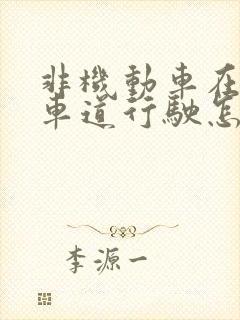 非機動車在
車道行駛怎
李源一